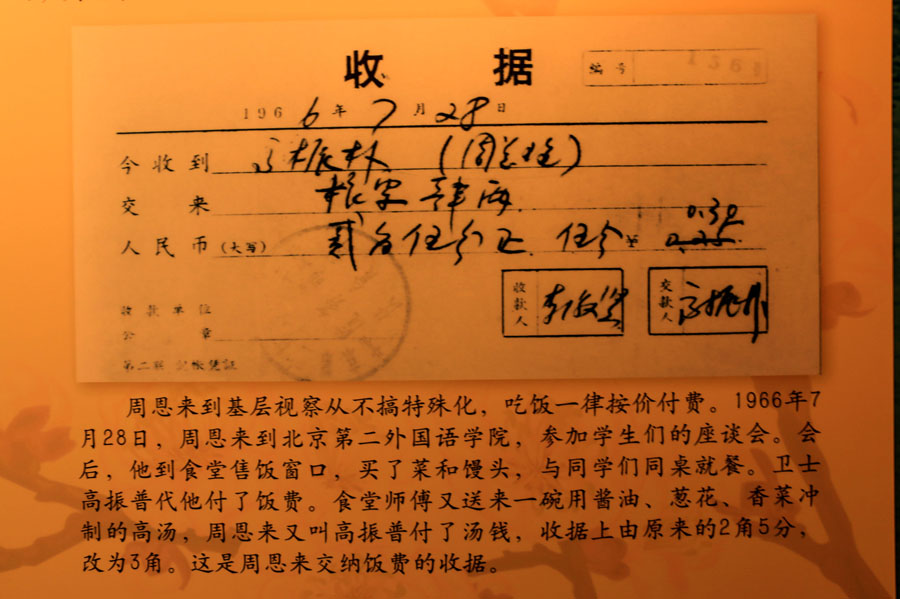 收 据
编号 1363
1966年7月28日
今收到 高振朴 (周总理)
交 来 粮票肆两
人民币(大写) 贰角伍分正 伍分 ¥ 0.25 0.30
收款人
交款人 高振朴
收款单位
公 章
第二联 记帐凭证
周恩来到基层视察从不搞特殊化，吃饭一律按价付费。1966年7
月28日，周恩来到北京第二外国语学院，参加学生们的座谈会。会
后，他到食堂售饭窗口，买了菜和馒头，与同学们同桌就餐。卫士
高振普代他付了饭费。食堂师傅又送来一碗用酱油、葱花、香菜冲
制的高汤，周恩来又叫高振普付了汤钱，收据上由原来的2角5分，
改为3角。这是周恩来交纳饭费的收据。